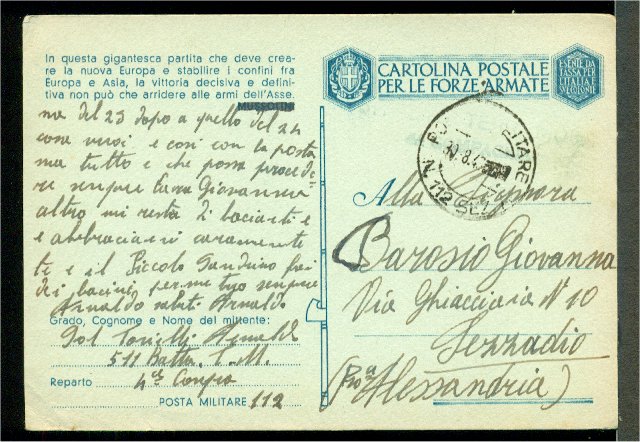 In questa gigantesca partita che deve crea-
re la nuova Europa e stabilire i confini fra
Europa e Asia, la vittoria decisiva e defini-
tiva non può che arridere alle armi dell'Asse.
MUSSOLINI
ma del 23 dopo a quello del 24
cosa vuoi e così con la posta
ma tutto e che possa
re sempre Cara Giovanna
altro mi resta
e abbracciarvi caramente
te e il Piccolo Sandrino
dei bacini per me tuo sempre
Arnaldo saluti Arnaldo
Grado, Cognome e Nome del mittente:
Sol Arnaldo
511 Batta.
Reparto 4a Compa
POSTA MILITARE 112
CARTOLINA POSTALE
PER LE FORZE ARMATE
ESENTE DA
TASSA PER
L'ITALIA E
SUE COLONIE
POSTA MILITARE
30.8.4
N. 112 SEZ.
Alla Signora
Barosio Giovanna
Via Ghiacciaia N 10
Sezzadio
(Pro a
Alessandria)